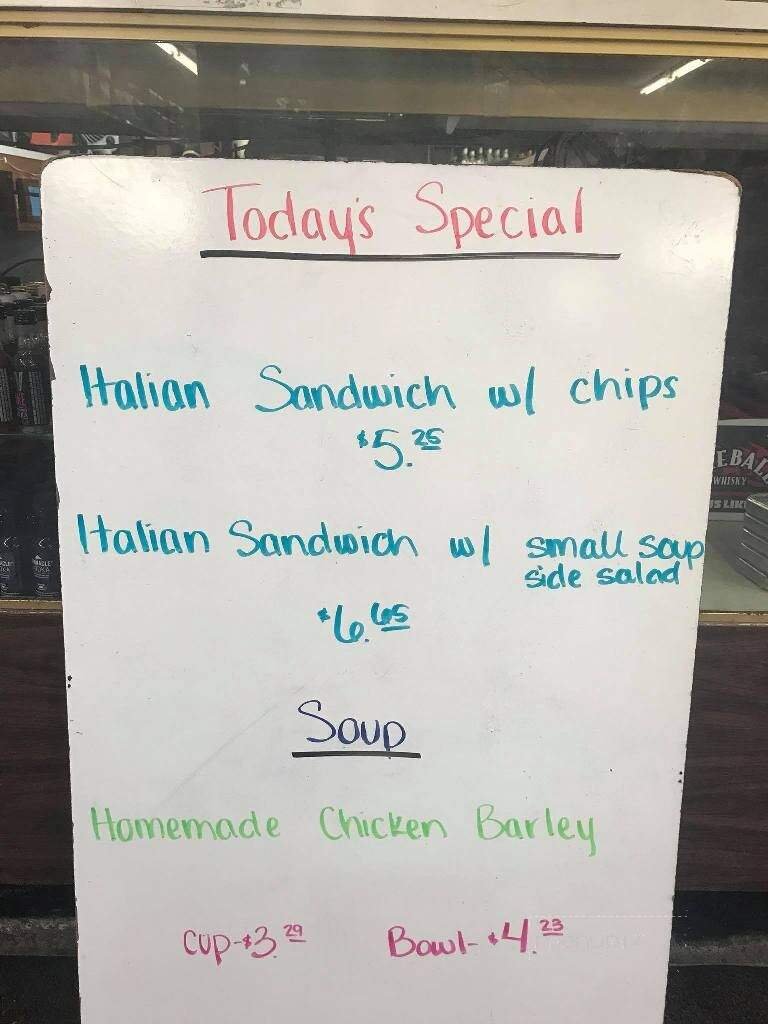 Today's Special
Italian Sandwich w/ chips
$5.25
Italian Sandwich w/ small soup
side salad
$6.65
Soup
Homemade Chicken Barley
Cup-$3.29 Bowl-$4.23
EBALL
WHISKY